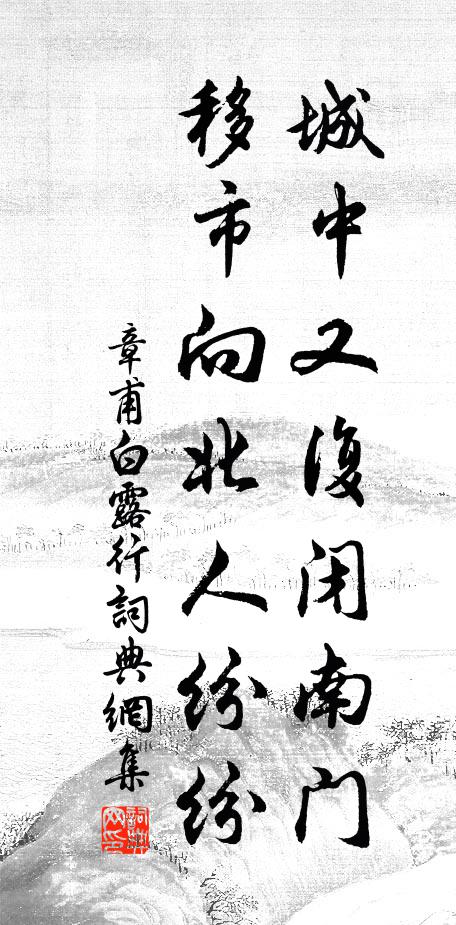 城中又復闭南门
移市向北人纷纷
章甫白露行詞典網集
詞典網印